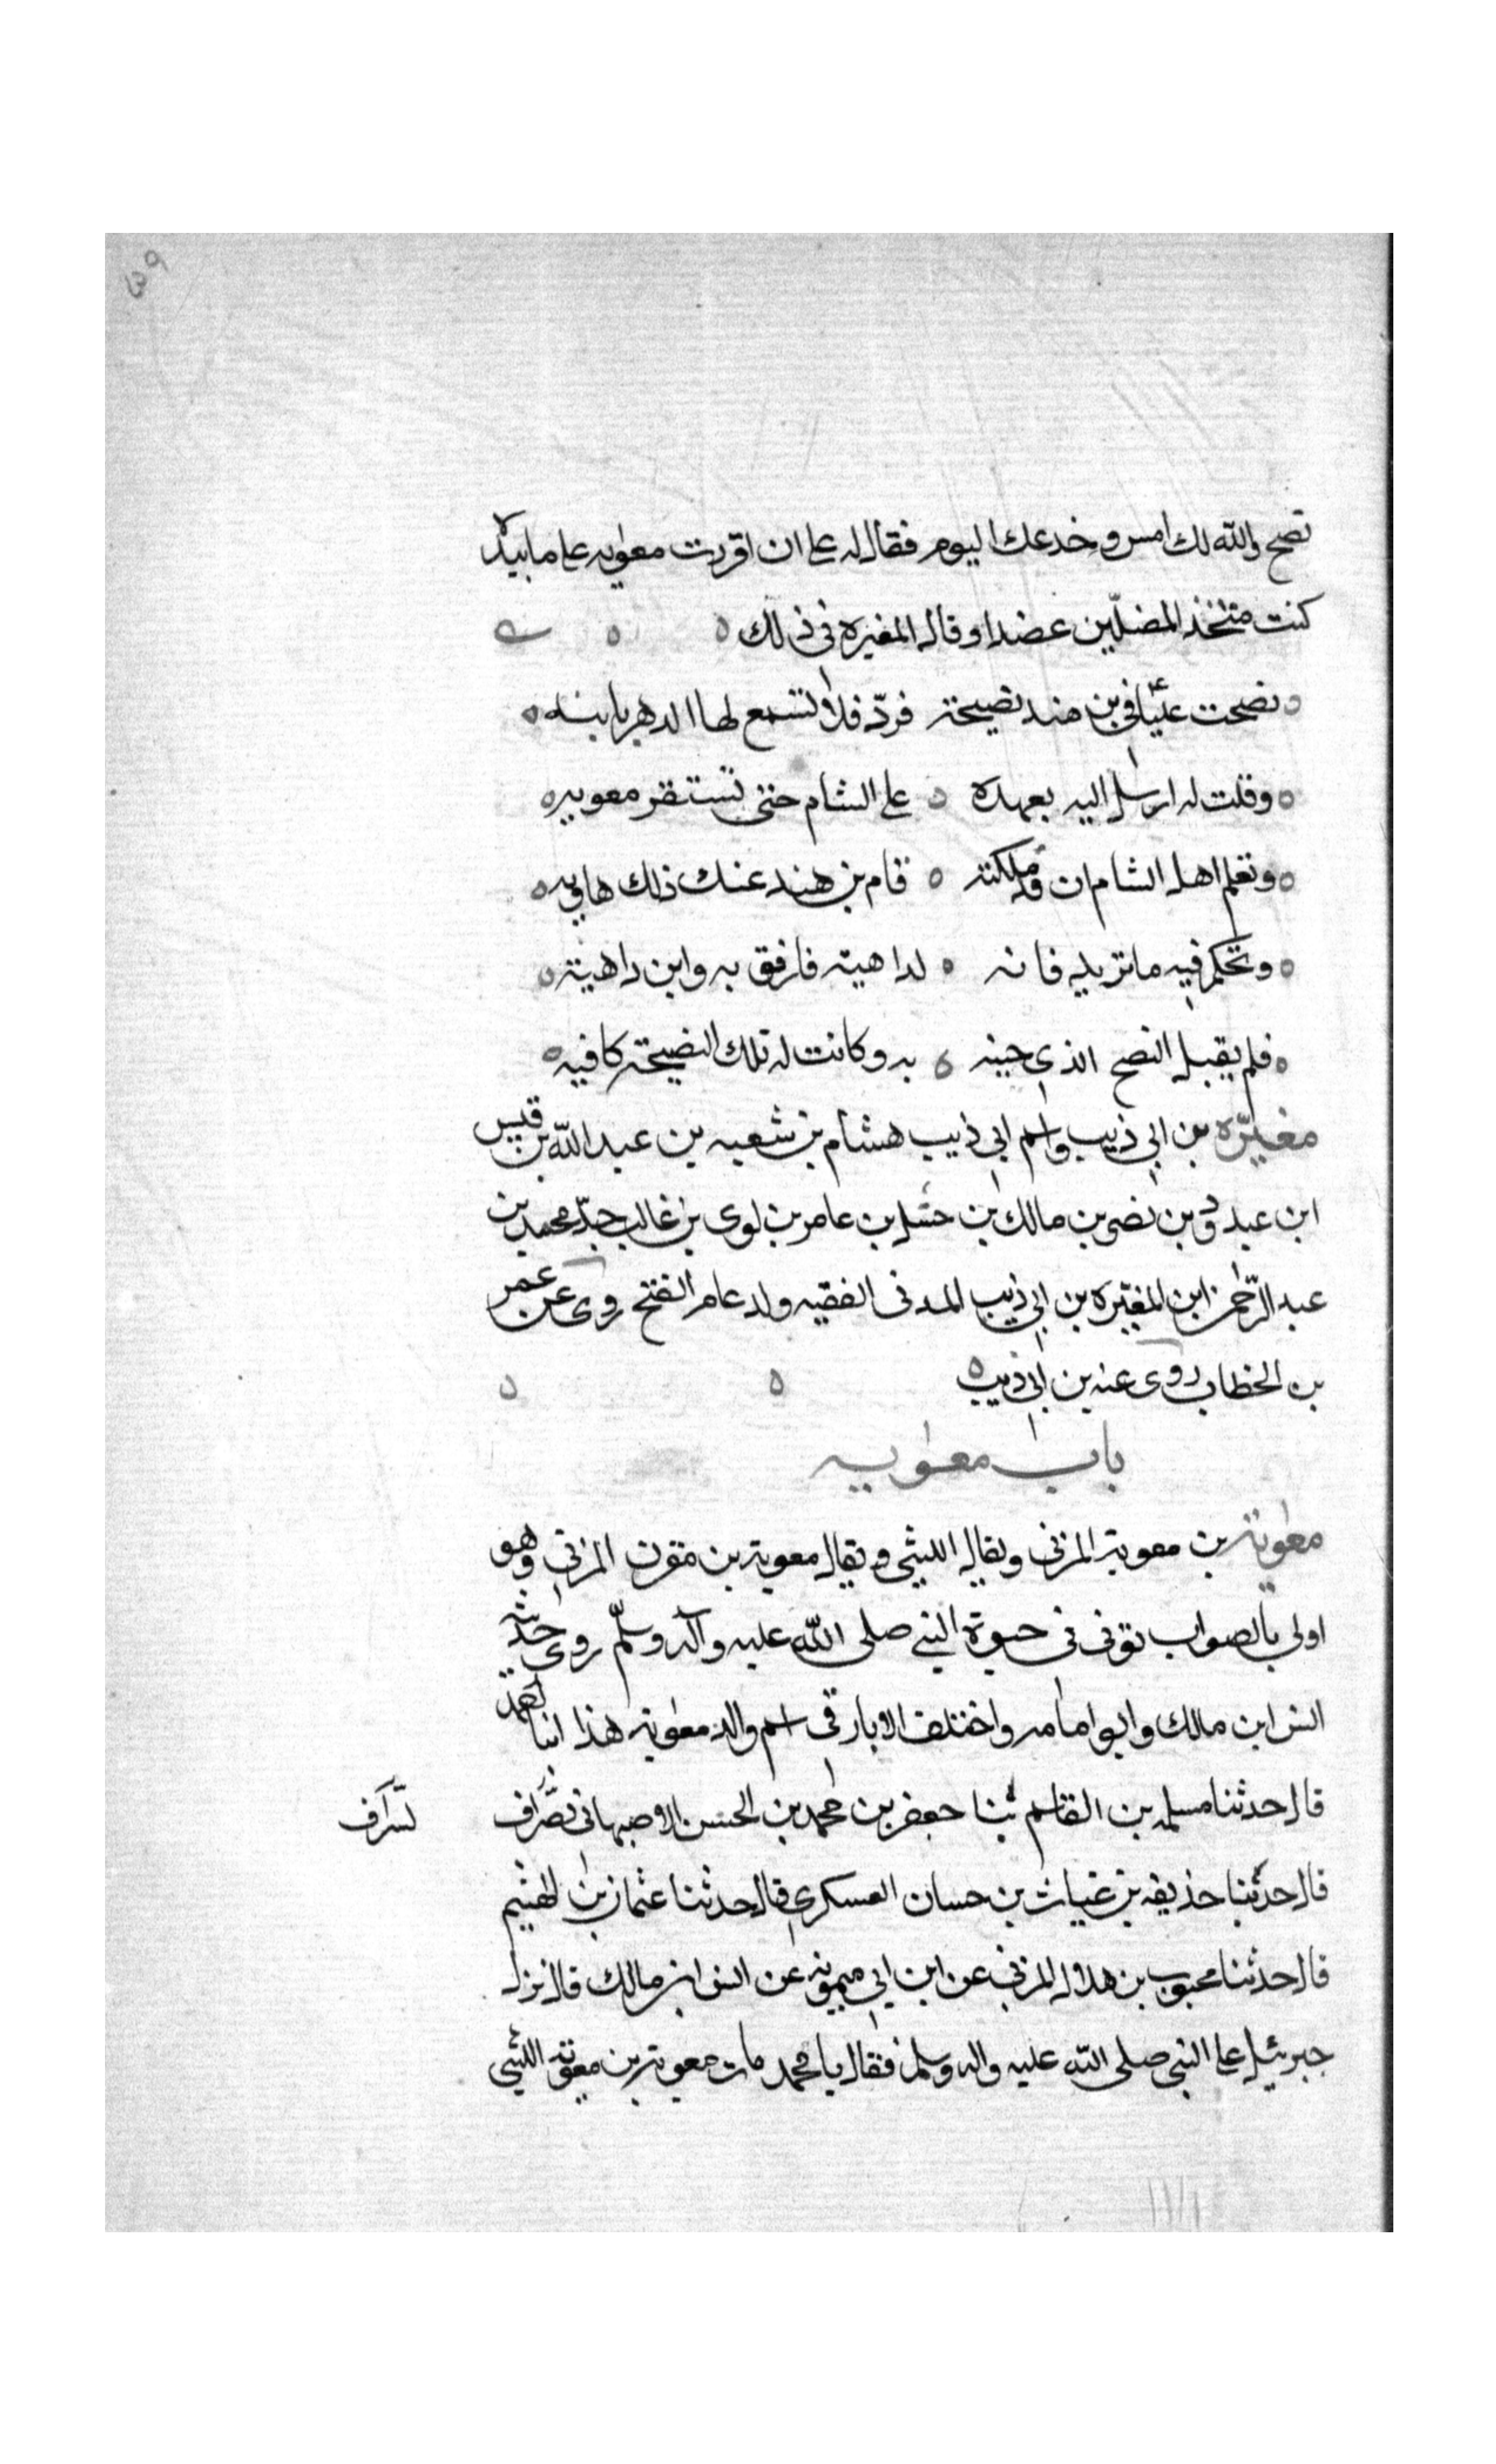 ٣٩
نصح والله لك امس وخدعك اليوم فقال له على ان اقررت معوية على ما بيده
كنت متخذ المضلين عضدا وقال المغيره في ذلك
نصحت عليا في بن هند نصيحة فردّ فلا تسمع لها الدهر ثانيه
وقلت له ارسل اليه بعهده على الشام حتى تستقر معويه
وتعلم اهل الشام ان قد ملكته فام بن هند عندك ذلك هاويه
وتحكم فيه ما تريد فانه لداهية فارفق به وابن داهية
فلم يقبل النصح الذي جيته به وكانت له تلك النصيحة كافيه
مغيره بن ابي ذيب واسم ابي ذيب هشام بن شعبه بن عبد الله بن قيس
ابن عبد ود بن نصر بن مالك بن حسل بن عامر بن لوى بن غالب جدّ محمد بن
عبد الرحمن ابن المغيره بن ابي ذيب المدنى الفقيه ولد عام الفتح روى عن عمر
بن الخطاب روى عنه بن ابي ذيب
باب معويه
معوية بن معوية المزني ويقال الليثي ويقال معوية بن مقرن المزني وهو
اولى بالصواب توفى فى حيوة النبي صلى الله عليه وآله وسلم روى حديثه
انس ابن مالك وابو امامه واختلف الاثار في اسم والد معوية هذا انبا احمد
قال حدثنا مسلمه بن القاسم ثنا جعفر بن محمد بن الحسن الاصبهاني بصراف
تسراف
قال حدثنا حذيفه بن غياث بن حسان العسكري قال حدثنا عثمان بن الهيثم
قال حدثنا محبوب بن هلال المزني عن ابن ابي ميمونه عن انس ابن مالك قال نزل
جبرئيل على النبي صلى الله عليه واله وسلم فقال يا محمد مات معوية بن معوية الليثي